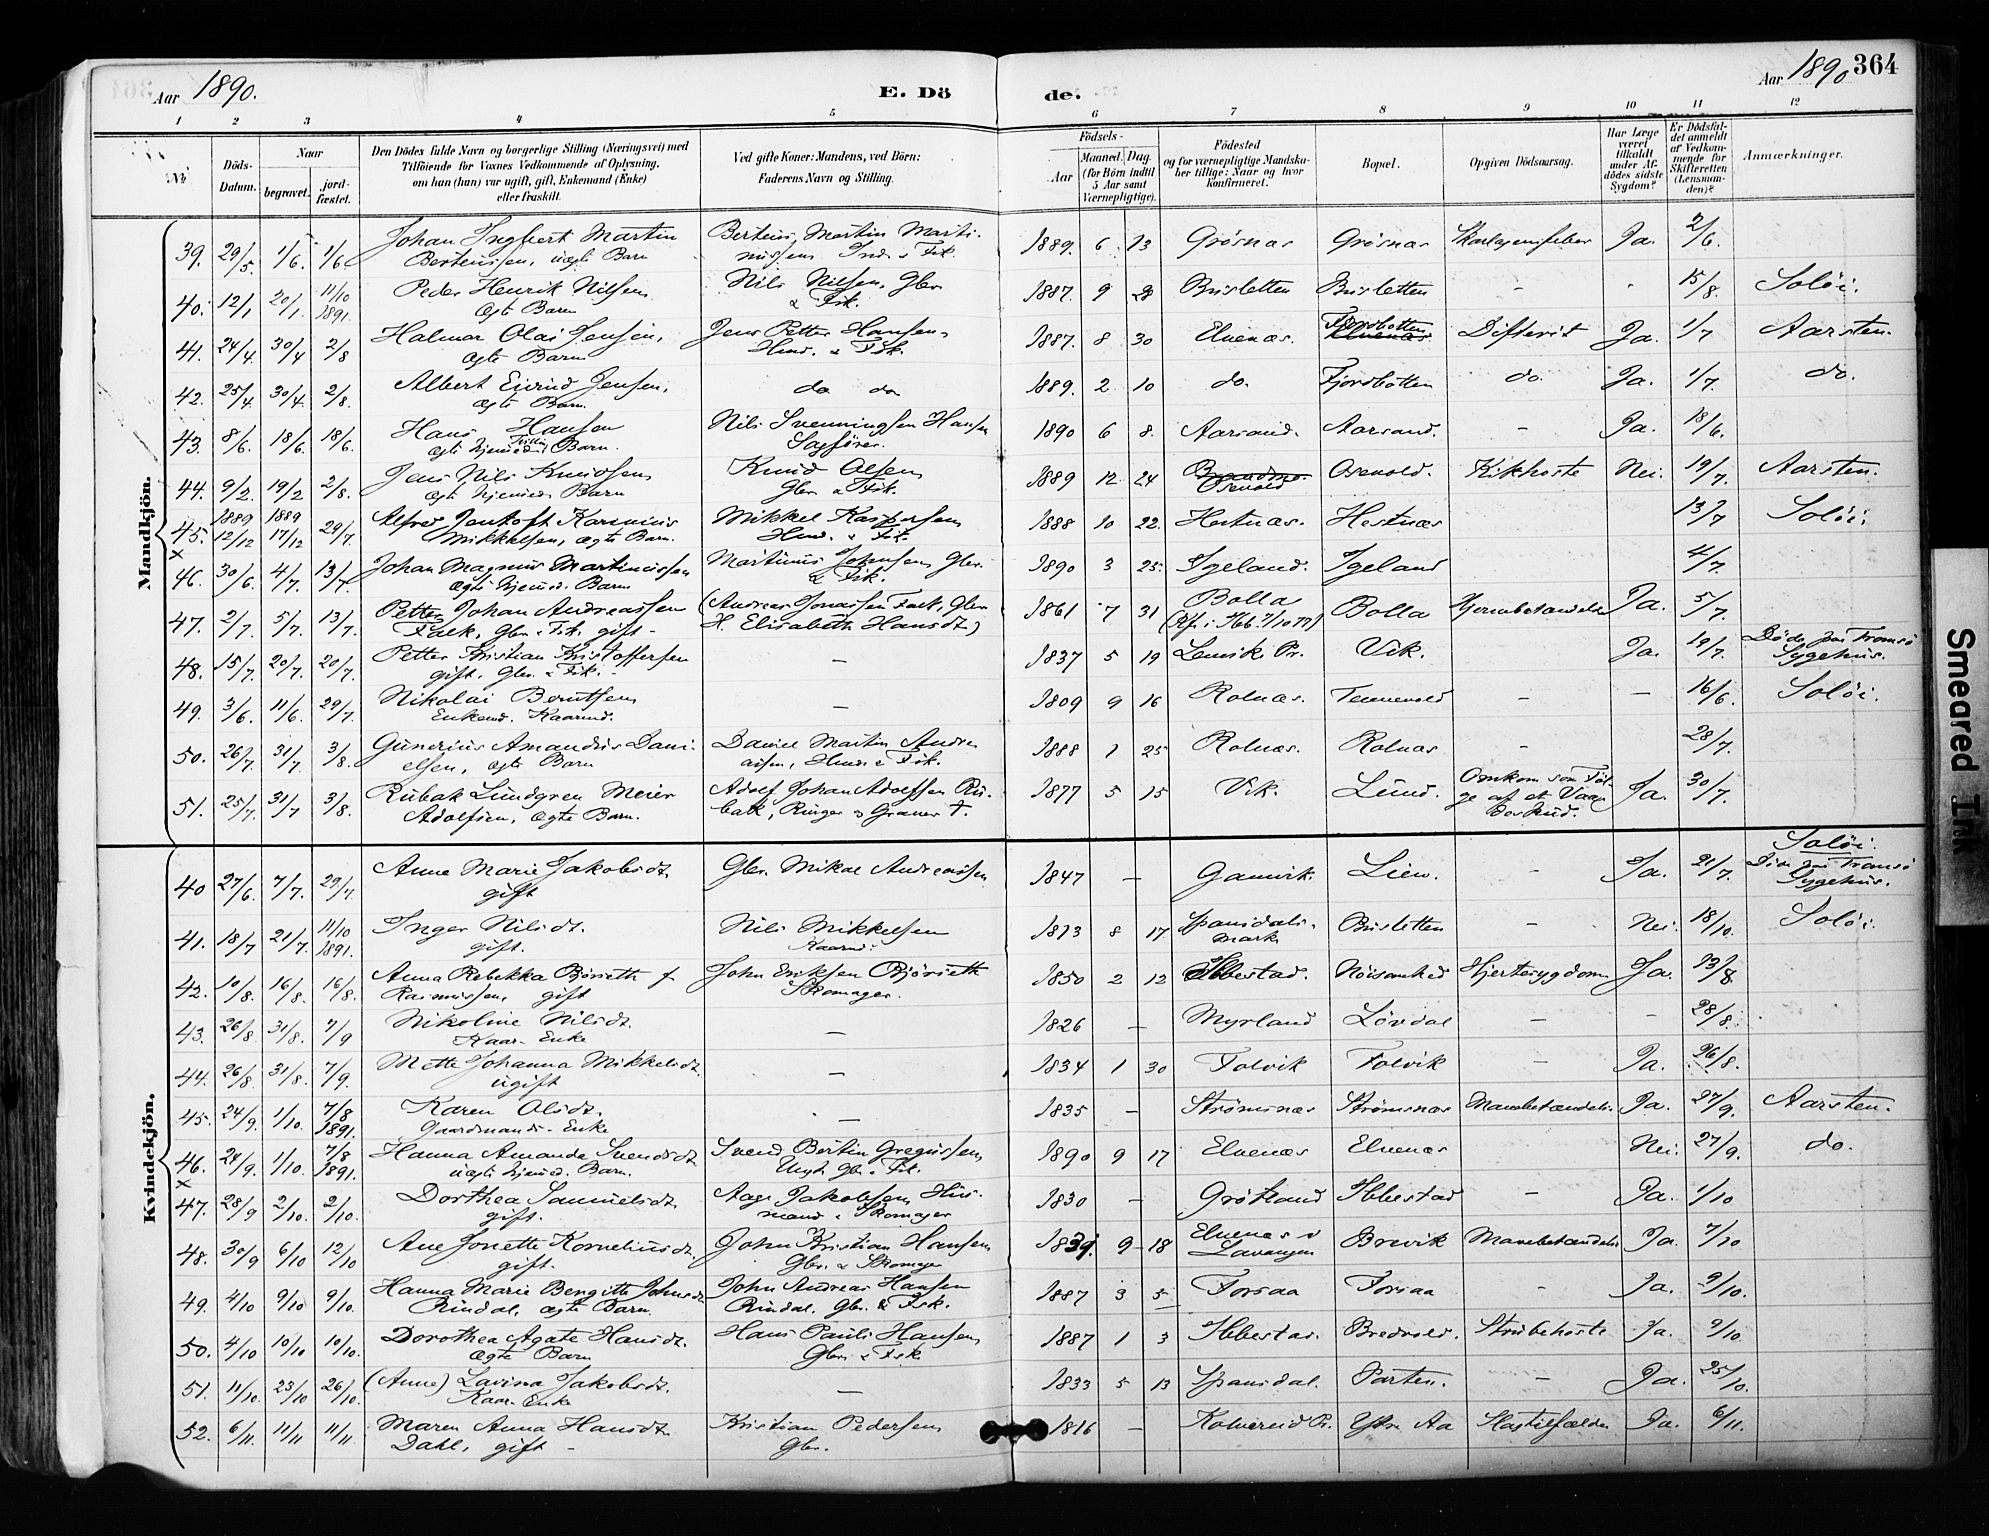 Aar 1890.
E. Dö
de.
Aar 1890 364
1 2 3 4 5 6 7 8 9 10 11 12
No
Döds-Datum.
Naar
begravet.
jord-fæstet.
Den Dödes fulde Navn og borgerlige Stilling (Næringsvei) med
Tilföiende for Voxnes Vedkommende af Oplysning,
om han (hun) var ugift, gift, Enkemand (Enke)
eller fraskilt.
Ved gifte Koner: Mandens, ved Börn:
Faderens Navn og Stilling.
Födsels-
Aar
Maaned. Dag.
(for Börn indtil
5 Aar samt
Værnepligtige).
Födested
og for værnepligtige Mandska-
ber tillige: Naar og hvor
konfirmeret.
Bopæl.
Opgiven Dödsaarsag.
Har Læge
været
tilkaldt
under Af-
dödes sidste
Sygdom?
Er Dödsfal-
det anmeldt
af Vedkom-
mende for
Skifteretten
(Lensman-
den)?
Anmærkninger.
Mandkjön.
39. 29/5. 1/6. 1/6 Johan Ingbert Martin Berteussen, uægte Barn Berteus Martin Marti-nussen Ind. & Fisk. 1889. 6 13 Grøsnæs Grøsnæs Ja. 2/6.
40. 12/1 20/1. 11/10 1891. Peder Henrik Nilsen ægte Barn Nils Nilsen, Gbr. & Fisk. 1887. 9 28 Brusletten Brusletten - 15/8. Soløi.
41. 24/4. 30/4 2/8 Halmar Olai Jensen, ægte Barn Jens Petter Hansen Hmd. & Fisk. 1887. 8 30 Elvenæs. Fjordbotten Difterit Ja. 1/7 Aarsten.
42. 25/4 30/4. 2/8. Albert Eivind Jensen, ægte Barn. do do 1889. 2 10 do. Fjordbotten do. Ja. 1/7. do.
43. 8/6. 18/6. 18/6. Hans Hansen ægte hjemdøbt Tvilling Barn. Nils Svenningsen Hansen Sagfører. 1890 6 8. Aarsand. Aarsand. - Ja. 18/6.
44. 9/2. 19/2 2/8. Jens Nils Knudsen ægte hjemed. Barn Knud Olsen Gbr. & Fisk. 1889 12 24 Osevold Osevold. Kikhoste Nei. 19/7. Aarsten.
45. x 1889 12/12 1889 17/12 29/7. Alfred Jentoft Karinius Mikkelsen, ægte Barn. Mikkel Kaspersen Hmd. & Fisk. 1888 10 22. Hestnæs. Hestnæs 13/7 Soløi.
46. 30/6. 4/7. 13/7. Johan Magnus Martinussen ægte hjemed. Barn Martinus Johnsen Gbr. & Fisk. 1890 3 25. Igeland. Igeland 4/7.
47. 2/7. 5/7. 13/7. Petter Johan Andreassen Falk, Gbr. & Fisk. gift - (Andreas Jonassen Falk, Gbr. H. Elisabeth Hansdt) 1861 7 31 Bolla Bolla Hjernebetændelse Ja. 5/7.
48. 15/7. 20/7. 20/7. Petter Kristian Kristoffersen gift. Gbr. & Fisk. - 1837 5 19 Lenvik Pr. Vik. Ja. 19/7. Døde paa Tromsø Sygehus.
49. 3/6. 11/6. 29/7. Nikolai Berntsen Enkemd. Kaarmd. - 1809 9 16 Rolnæs. Tennevold - - 16/6. Soløi.
50. 26/7. 31/7. 3/8. Gunerius Amandus Dani-elsen, ægte Barn Daniel Martin Andre-assen, Hmd. & Fisk. 1888 1 25 Rolnæs. Rolnæs - 28/7.
51. 25/7. 31/7 3/8. Rubak Lundgren Meier Adolfsen, ægte Barn. Adolf Johan Adolfsen Ru-bak, Ringer & Graver †. 1877 5 15 Vik. Lund. Omkom som Føl-ge af et Vaa-deskud. Ja. 30/7.
Kvindekjön.
40 27/6. 7/7. 29/7. Anne Marie Jakobsdt. gift Gbr. Mikal Andreassen 1847 - Gamvik. Lien. - Ja. 21/7. Soløi. Døde paa Tromsø Sygehus.
41. 18/7 21/7. 11/10 1891. Inger Nilsdt. gift. Nils Mikkelsen Kaarmd. 1813 8 17 Spansdals-mark Brusletten - Nei. 18/10. Soløi.
42. 10/8. 16/8. 16/8. Anna Rebekka Bjørseth f. Rasmussen, gift John Eriksen Bjørseth Skomager. 1850 2 12 Ibbestad. Nøisomhed Hjertesygdom Ja. 13/8.
43. 26/8 31/8. 7/9 Nikoline Nilsdt. Kaar-Enke - 1826 - Myrland Løvdal - - 28/8.
44. 26/8. 31/8. 7/9. Mette Johanna Mikkelsdt. ugift - 1834 1 30 Folvik Folvik - Ja. 26/8.
45. 24/9. 1/10. 7/8 1891. Karen Olsdt. Gaardmands-Enke - 1835 - Strømsnæs Strømsnæs Mavebetændelse Ja. 27/9. Aarsten.
46. x 24/9. 1/10. 7/8 1891. Hanna Amanda Svendsdt. uægte hjemed. Barn. Svend Bertin Gregussen Ungk. Gbr. & Fisk. 1890 9 17 Elvenæs Elvenæs Nei. 27/9. do.
47. 28/9 2/10. 2/10. Dorthea Samuelsdt. gift. Aage Jakobsen, Hus-mand & Skomager 1830 - Grøtland Ibbestad - Ja. 1/10
48. 30/9 6/10 12/10 Ane Jonette Korneliusdt. gift. John Kristian Hansen Gbr. & Skomager 1839. 9 18 Elvenæs v Lavangen Brevik Mavebetændelse Ja. 7/10
49. 4/10 9/10 9/10. Hanna Marie Bergitte Johnsdt. Rindal, ægte Barn. John Andreas Hansen Rindal. Gbr. & Fisk. 1887 3 5 Forsaa Forsaa - Ja. 9/10.
50. 4/10 10/10 10/10. Dorothea Agate Hansdt. ægte Barn Hans Pauli Hansen Gbr. & Fisk 1887 1 3 Ibbestad. Bredvold. Strubehoste Ja. 9/10.
51. 11/10. 23/10 26/10. (Anne) Lavina Jakobsdt. Kaar-Enke - 1833 5 13 Spansdal. Parten. - Ja. 25/10.
52. 6/11. 11/11 11/11 Maren Anna Hansdt. Dahl, gift - Kristian Pedersen Gbr. 1816 - Kolvereid Pr. Ytre Aa Slagtilfælde Ja. 6/11.
Smeared Ink